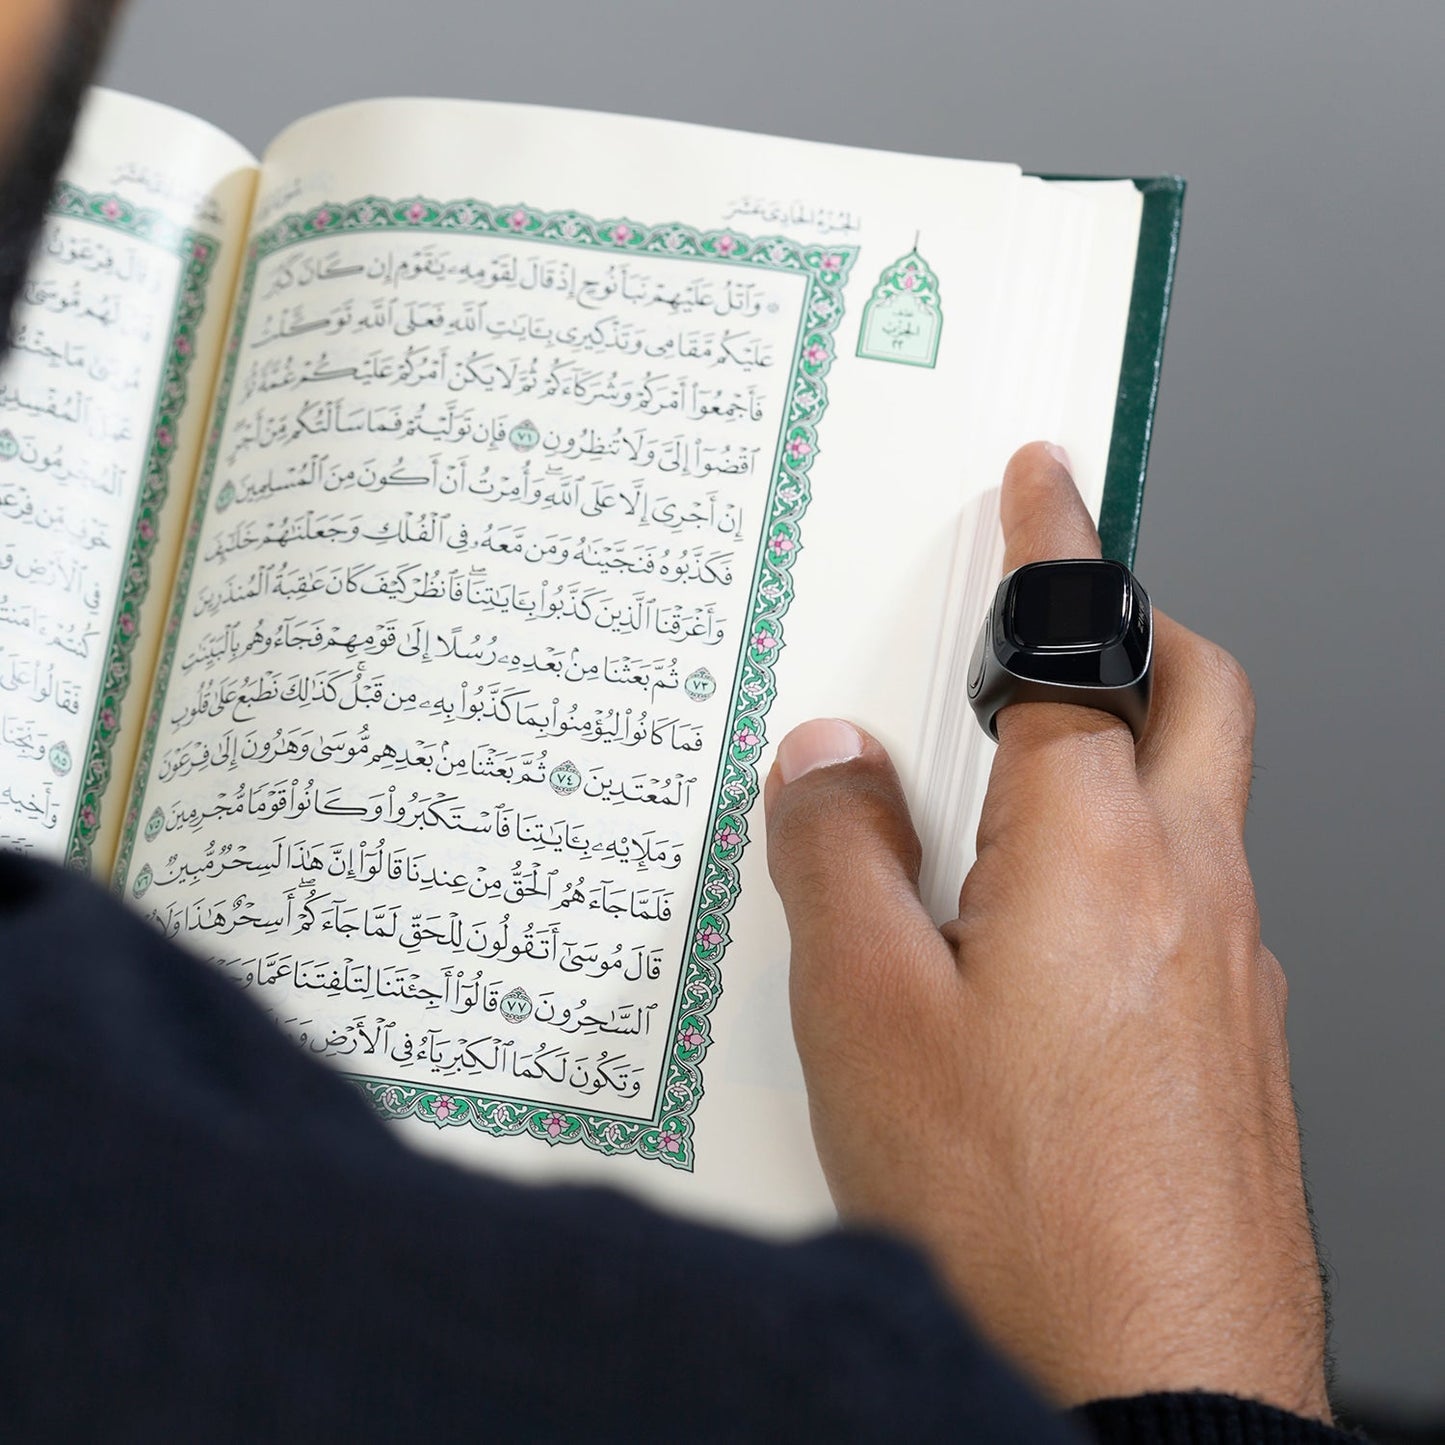 الجُزْءُ الحَادِي عَشَرَ
نصف
الحزب
٢٢
۞ وَٱتۡلُ عَلَيۡهِمۡ نَبَأَ نُوحٍ إِذۡ قَالَ لِقَوۡمِهِۦ يَٰقَوۡمِ إِن كَانَ كَبُرَ
عَلَيۡكُم مَّقَامِي وَتَذۡكِيرِي بِـَٔايَٰتِ ٱللَّهِ فَعَلَى ٱللَّهِ تَوَكَّلۡتُ
فَأَجۡمِعُوٓاْ أَمۡرَكُمۡ وَشُرَكَآءَكُمۡ ثُمَّ لَا يَكُنۡ أَمۡرُكُمۡ عَلَيۡكُمۡ غُمَّةٗ ثُمَّ
ٱقۡضُوٓاْ إِلَيَّ وَلَا تُنظِرُونِ ٧١ فَإِن تَوَلَّيۡتُمۡ فَمَا سَأَلۡتُكُم مِّنۡ أَجۡرٍۖ
إِنۡ أَجۡرِيَ إِلَّا عَلَى ٱللَّهِۖ وَأُمِرۡتُ أَنۡ أَكُونَ مِنَ ٱلۡمُسۡلِمِينَ ٧٢
فَكَذَّبُوهُ فَنَجَّيۡنَٰهُ وَمَن مَّعَهُۥ فِي ٱلۡفُلۡكِ وَجَعَلۡنَٰهُمۡ خَلَٰٓئِفَ
وَأَغۡرَقۡنَا ٱلَّذِينَ كَذَّبُواْ بِـَٔايَٰتِنَاۖ فَٱنظُرۡ كَيۡفَ كَانَ عَٰقِبَةُ ٱلۡمُنذَرِينَ
٧٣ ثُمَّ بَعَثۡنَا مِنۢ بَعۡدِهِۦ رُسُلًا إِلَىٰ قَوۡمِهِمۡ فَجَآءُوهُم بِٱلۡبَيِّنَٰتِ
فَمَا كَانُواْ لِيُؤۡمِنُواْ بِمَا كَذَّبُواْ بِهِۦ مِن قَبۡلُۚ كَذَٰلِكَ نَطۡبَعُ عَلَىٰ قُلُوبِ
ٱلۡمُعۡتَدِينَ ٧٤ ثُمَّ بَعَثۡنَا مِنۢ بَعۡدِهِم مُّوسَىٰ وَهَٰرُونَ إِلَىٰ فِرۡعَوۡنَ
وَمَلَإِيْهِۦ بِـَٔايَٰتِنَا فَٱسۡتَكۡبَرُواْ وَكَانُواْ قَوۡمٗا مُّجۡرِمِينَ ٧٥
فَلَمَّا جَآءَهُمُ ٱلۡحَقُّ مِنۡ عِندِنَا قَالُوٓاْ إِنَّ هَٰذَا لَسِحۡرٞ مُّبِينٞ ٧٦
قَالَ مُوسَىٰٓ أَتَقُولُونَ لِلۡحَقِّ لَمَّا جَآءَكُمۡۖ أَسِحۡرٌ هَٰذَا وَلَا
ٱلسَّٰحِرُونَ ٧٧ قَالُوٓاْ أَجِئۡتَنَا لِتَلۡفِتَنَا عَمَّا
وَتَكُونَ لَكُمَا ٱلۡكِبۡرِيَآءُ فِي ٱلۡأَرۡضِ
وَقَالَ فِرۡعَوۡنُ
لَهُم مُّوسَىٰٓ
مَا جِئۡتُم
عَمَلَ ٱلۡمُفۡسِدِينَ
ٱلۡمُجۡرِمُونَ ٨٢
خَوۡفٖ مِّن فِرۡعَوۡنَ
فِي ٱلۡأَرۡضِ
كُنتُمۡ ءَامَنتُم
فَقَالُواْ عَلَى
٨٥ وَنَجِّنَا
وَأَخِيهِ